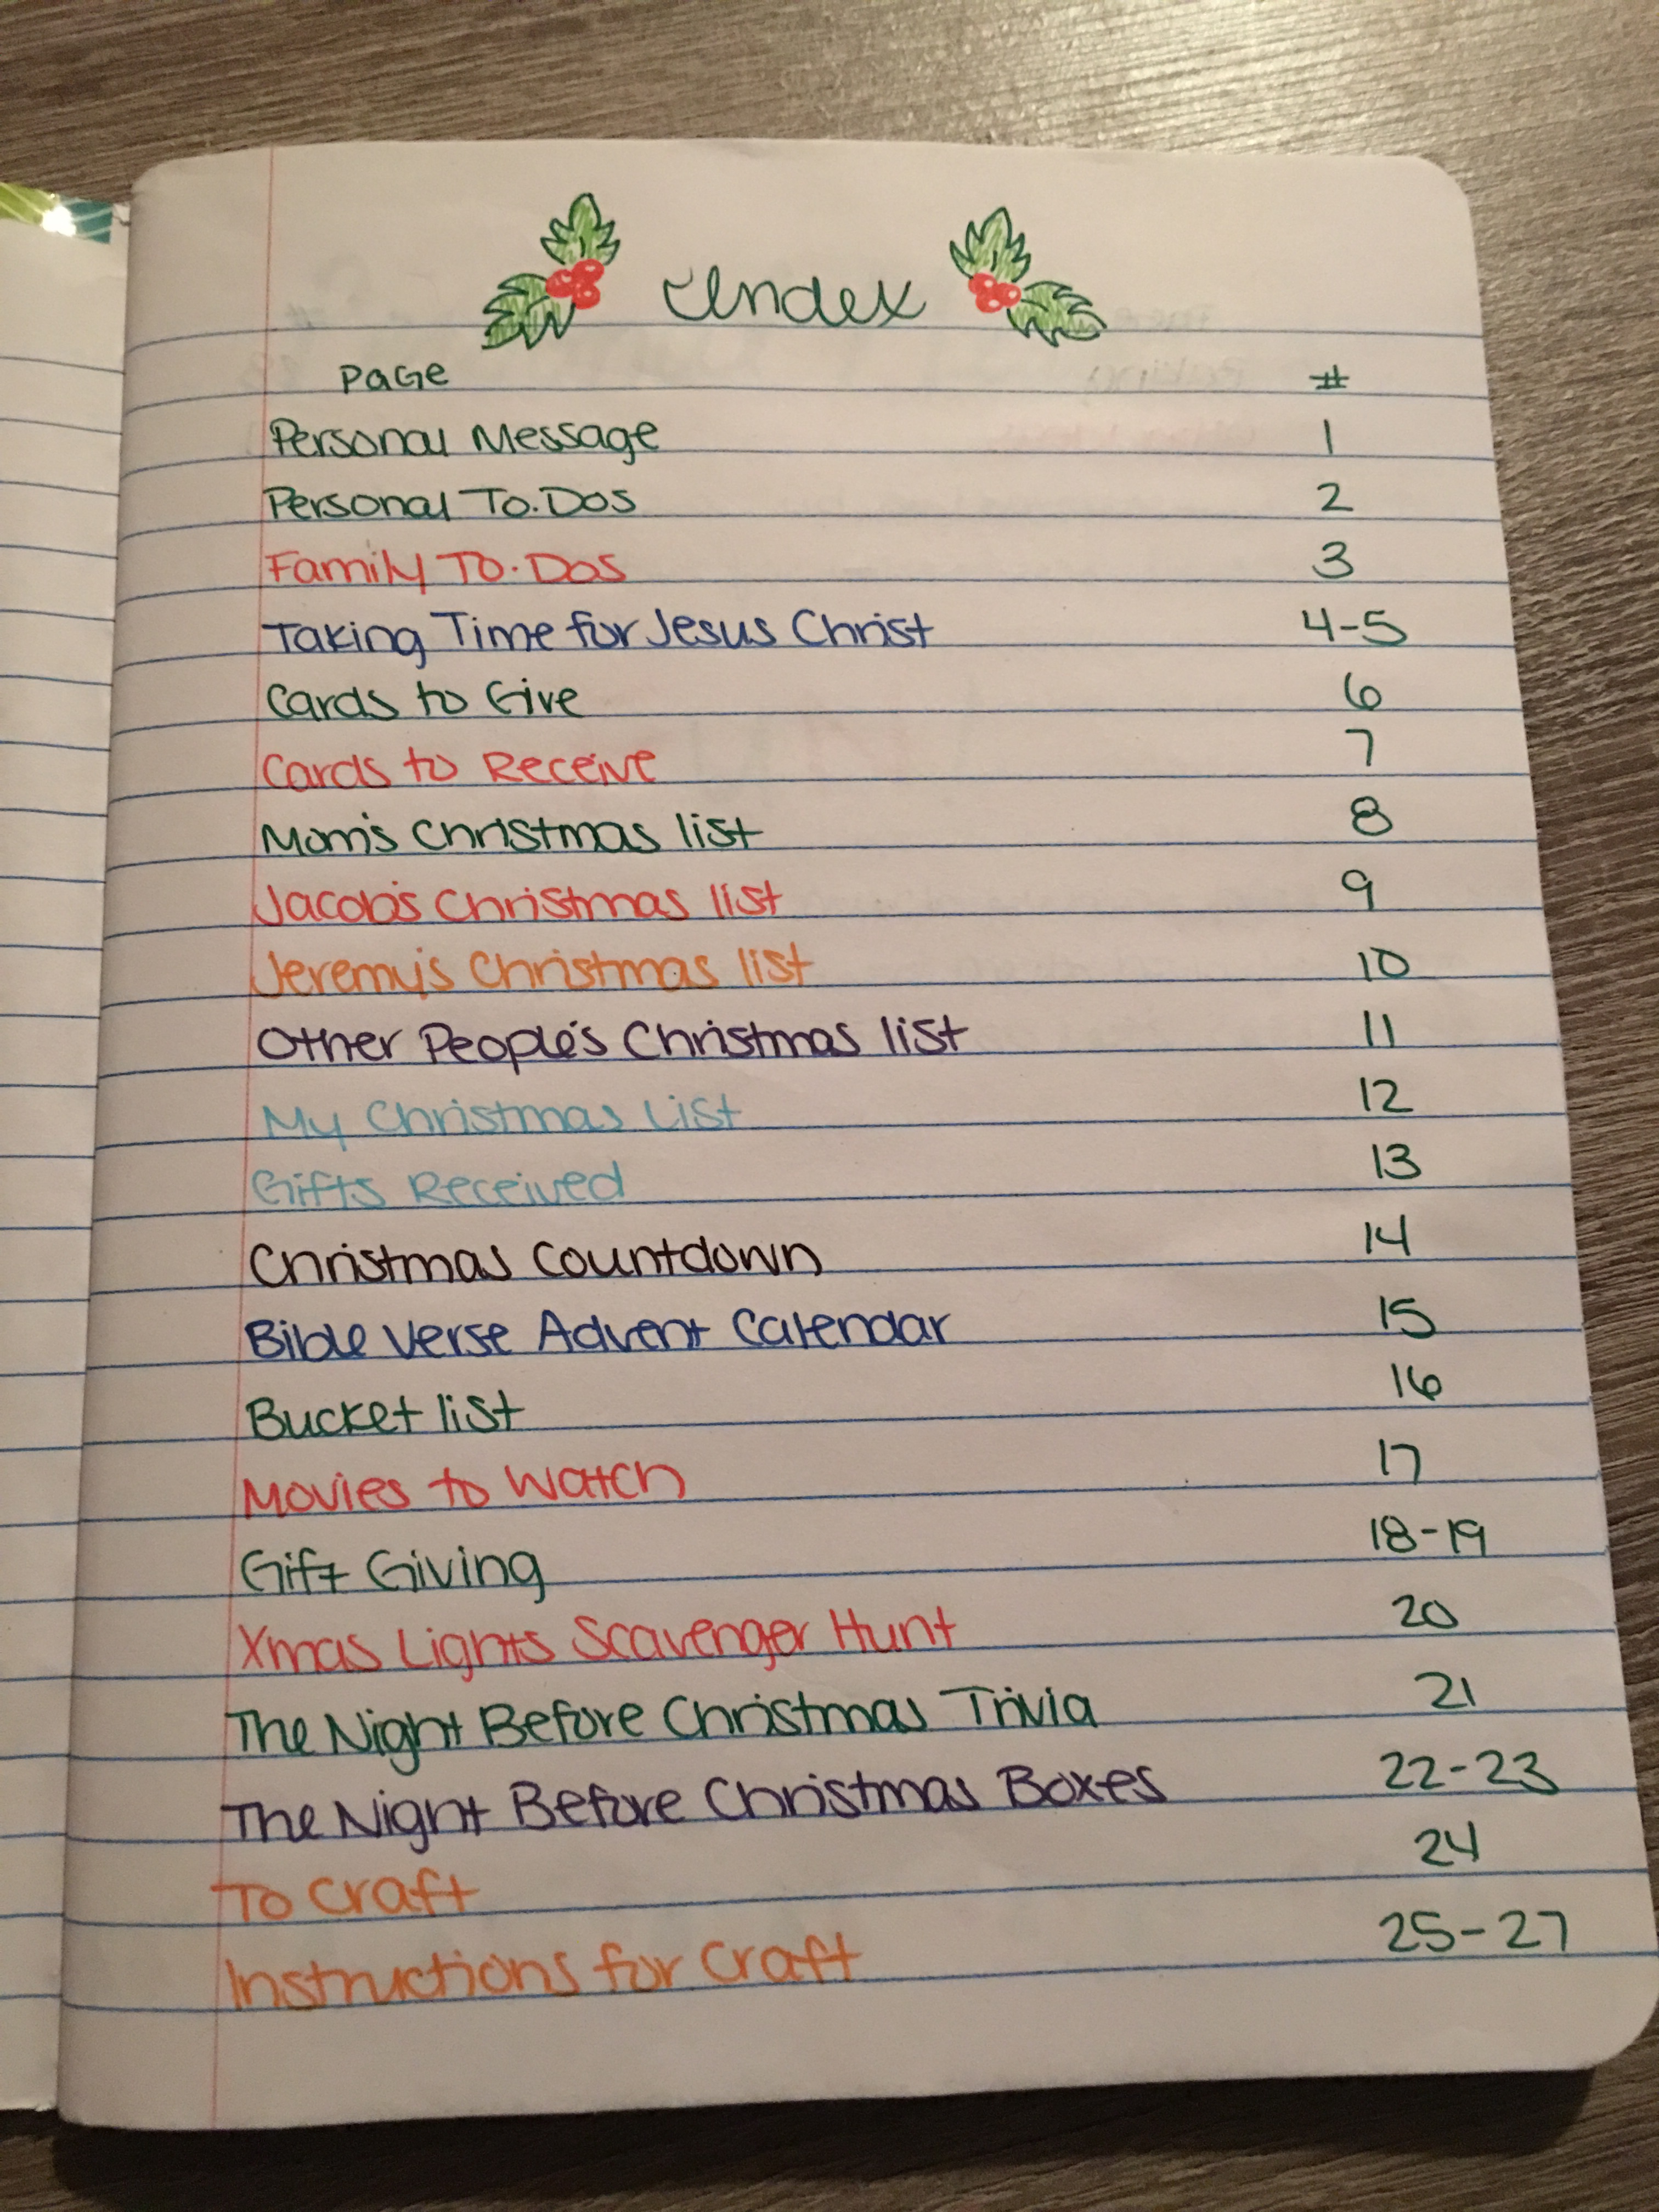 Index
Page #
Personal Message 1
Personal To-Dos 2
Family To-Dos 3
Taking Time for Jesus Christ 4-5
Cards to Give 6
Cards to Receive 7
Mom's Christmas list 8
Jacob's Christmas list 9
Jeremy's Christmas list 10
Other People's Christmas list 11
My Christmas List 12
Gifts Received 13
Christmas Countdown 14
Bible Verse Advent Calendar 15
Bucket list 16
Movies to Watch 17
Gift Giving 18-19
Xmas Lights Scavenger Hunt 20
The Night Before Christmas Trivia 21
The Night Before Christmas Boxes 22-23
To Craft 24
Instructions for Craft 25-27